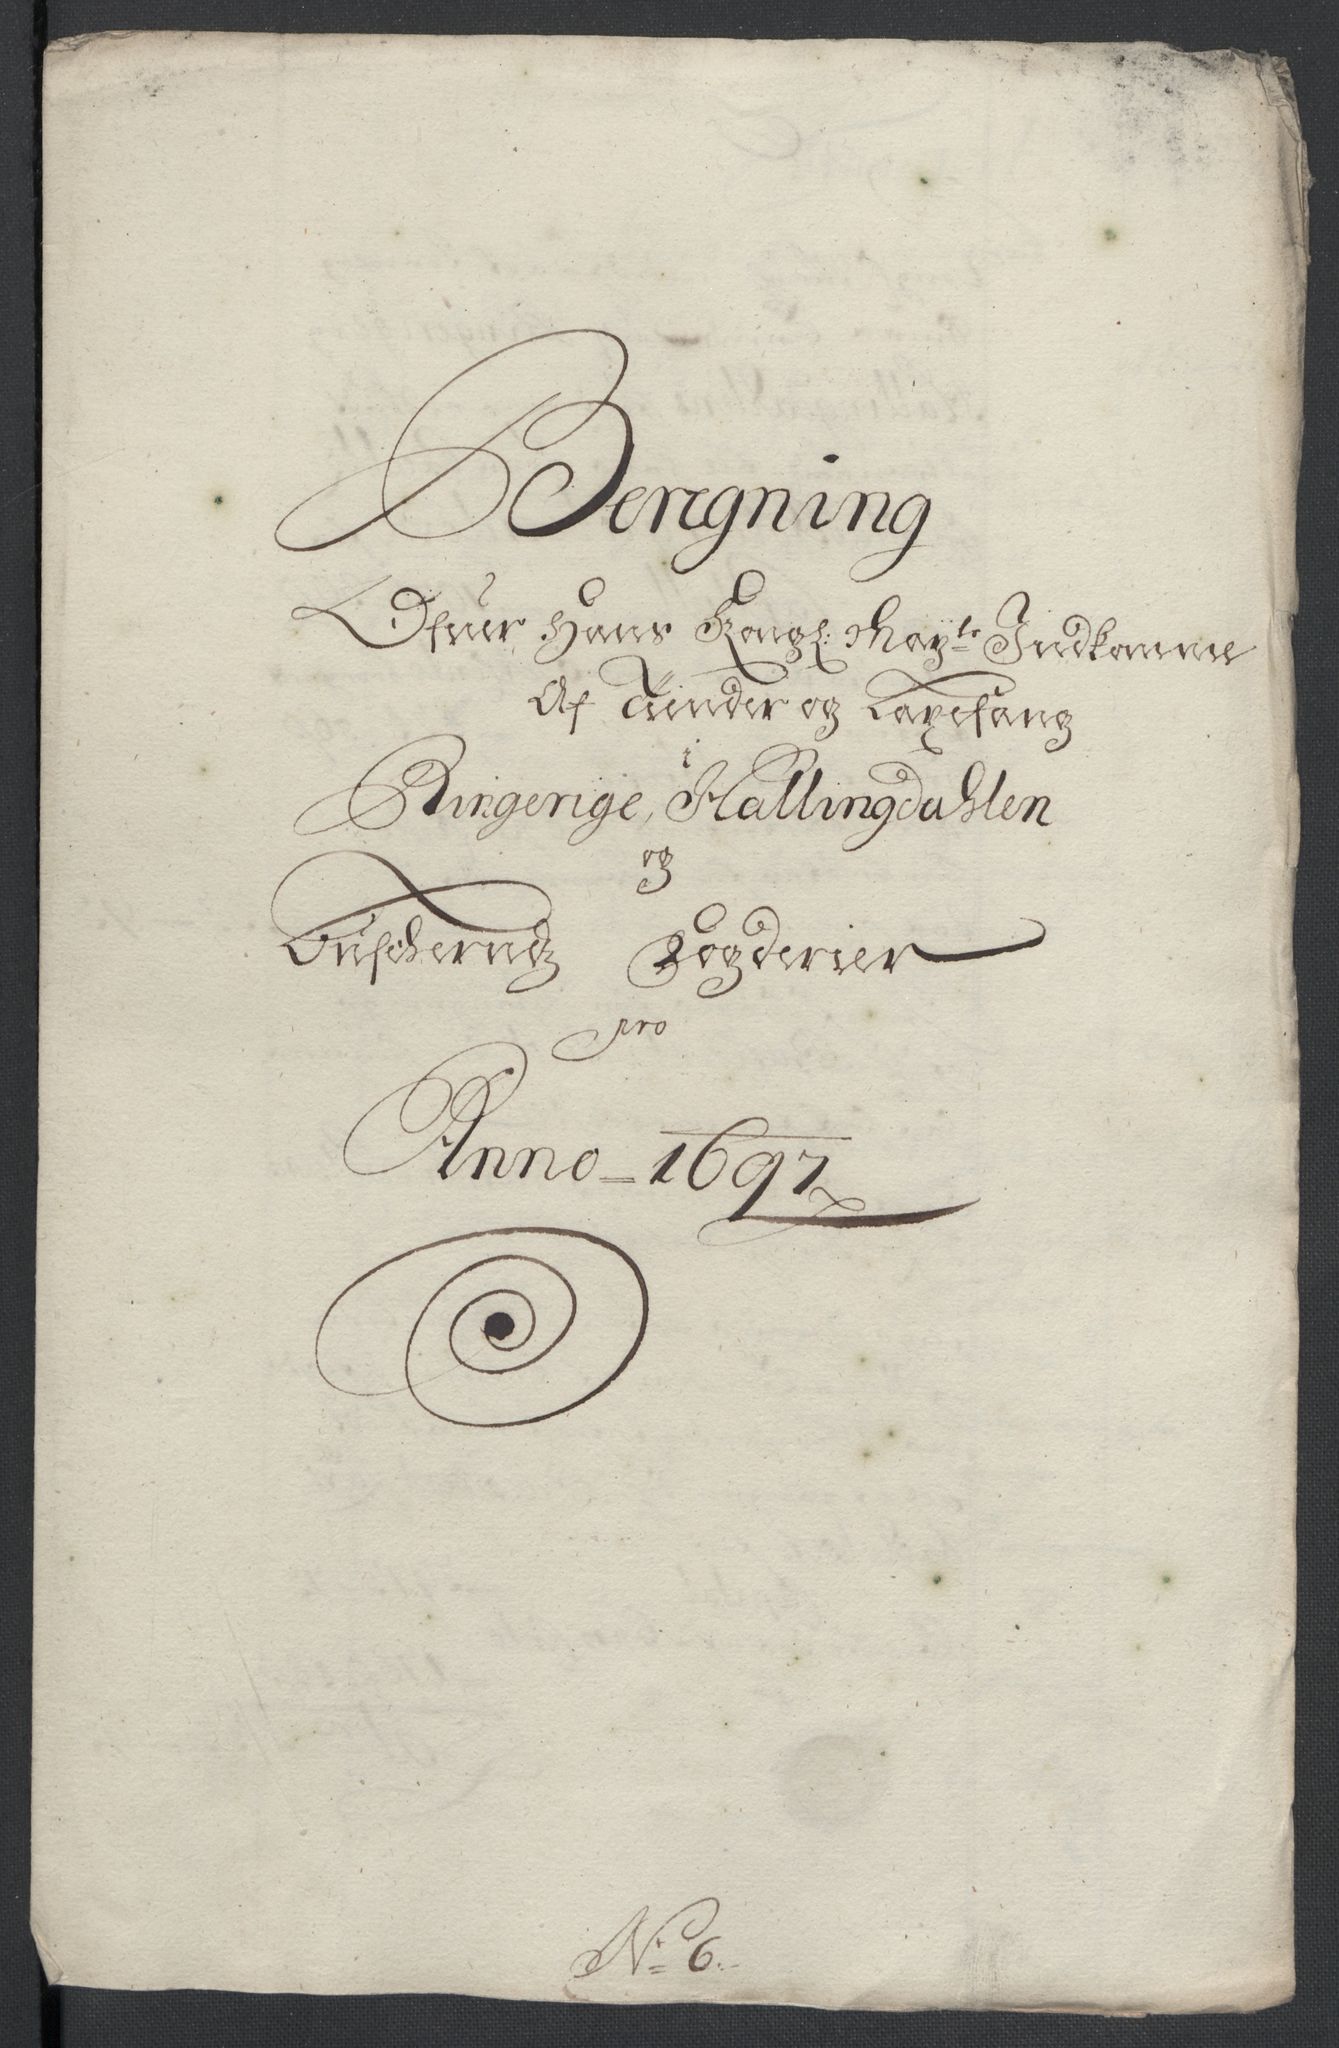 Beregning
Ofver Hans Kongl: Mayts Indkomme
Af Tiender og Laxefang
i
Ringerige, Hallingdahlen
og
Buscheruds Fogderier
pro
Anno 1697
No 6.